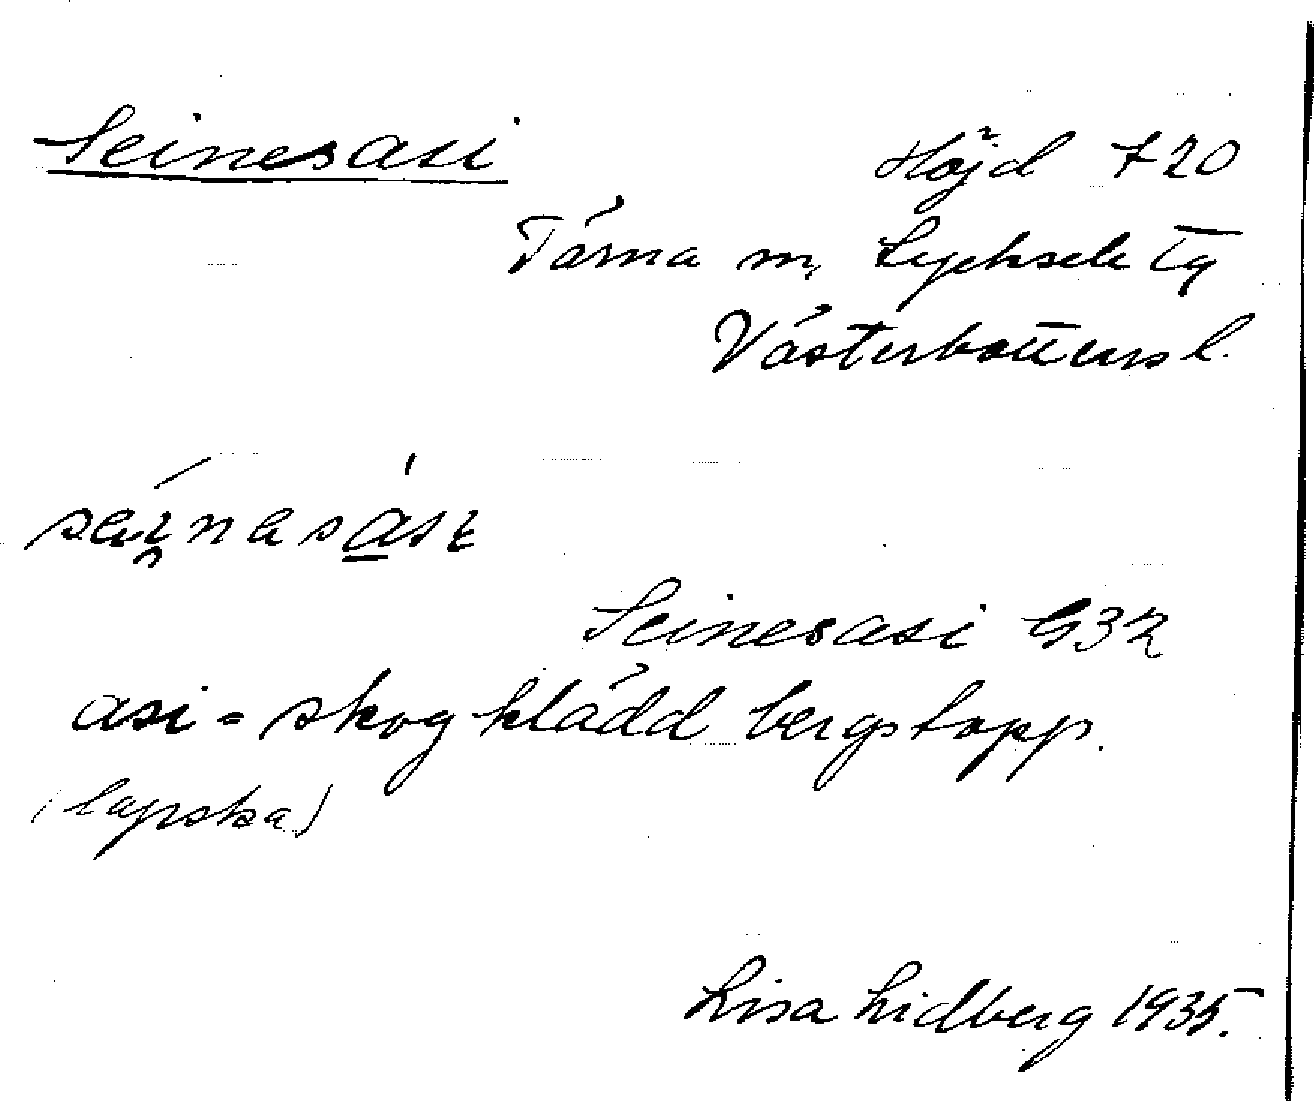 Seinesasi Höjd 720
Tärna m, Lycksele Tg
Västerbottens l.
Seinesasi G32
asi = skogklädd bergstopp.
(lapska)
Lisa Lidberg 1935.